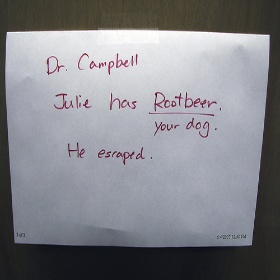 Dr. Campbell
Julie has Rootbeer.
your dog.
He escaped.